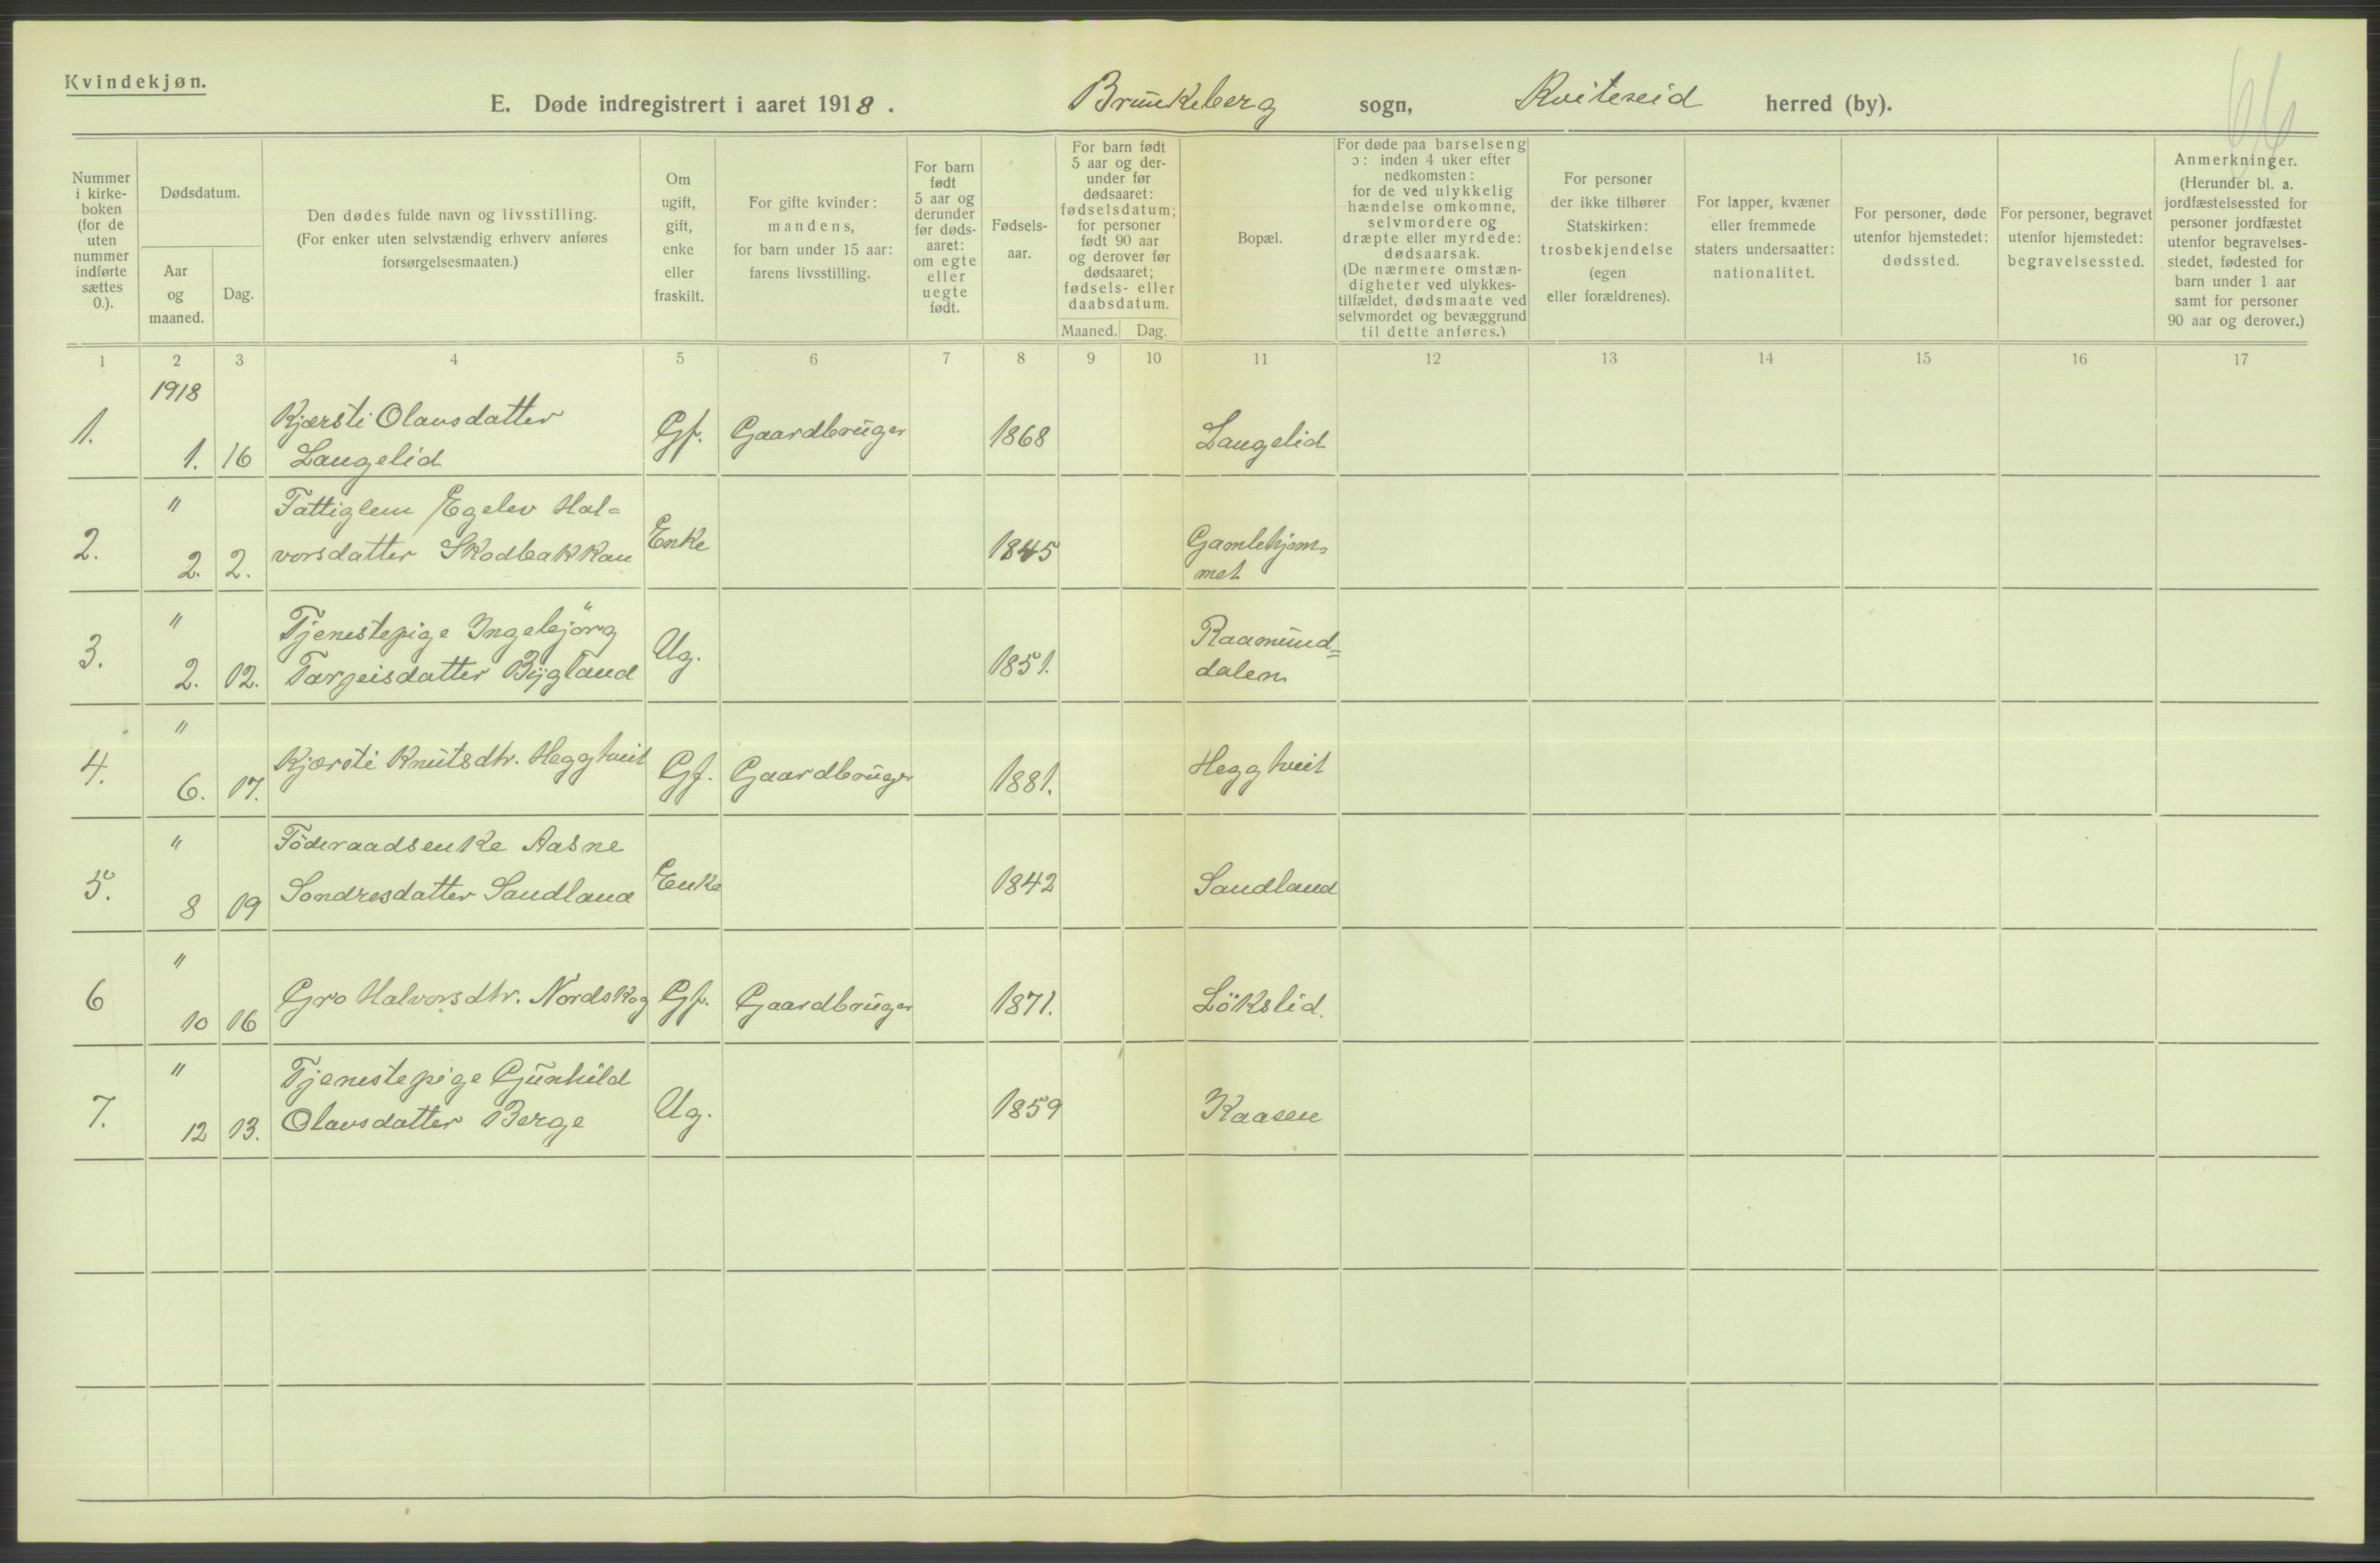 Kvindekjøn.
E. Døde indregistrert i aaret 1918. Brunkeberg sogn, Kviteseid herred (by).
Nummer i kirke- boken (for de uten nummer indførte sættes 0.).
Dødsdatum.
Aar og maaned.
Dag.
Den dødes fulde navn og livsstilling.
(For enker uten selvstændig erhverv anføres
forsørgelsesmaaten.)
Om ugift, gift, enke eller fraskilt.
For gifte kvinder:
mandens,
for barn under 15 aar:
farens livsstilling.
For barn født 5 aar og derunder før døds- aaret: om egte eller uegte født.
Fødsels- aar.
For barn født 5 aar og der- under før dødsaaret: fødselsdatum; for personer født 90 aar og derover før dødsaaret; fødsels- eller daabsdatum.
Maaned. Dag.
Bopæl.
For døde paa barselseng
ɔ: inden 4 uker efter
nedkomsten:
for de ved ulykkelig
hændelse omkomne,
selvmordere og
dræpte eller myrdede:
dødsaarsak.
(De nærmere omstæn-
digheter ved ulykkes-
tilfældet, dødsmaate ved
selvmordet og bevæggrund
til dette anføres.)
For personer
der ikke tilhører
Statskirken:
trosbekjendelse
(egen
eller forældrenes).
For lapper, kvæner
eller fremmede
staters undersaatter:
nationalitet.
For personer, døde
utenfor hjemstedet:
dødssted.
For personer, begravet
utenfor hjemstedet:
begravelsessted.
Anmerkninger.
(Herunder bl. a.
jordfæstelsessted for
personer jordfæstet
utenfor begravelses-
stedet, fødested for
barn under 1 aar
samt for personer
90 aar og derover.)
1 2 3 4 5 6 7 8 9 10 11 12 13 14 15 16 17
1918
1. 1. 16 Kjærsti Olavsdatter
Langelid Gf. Gaardbruger 1868 Langelid
" Fattiglem Egelev Hal=
2. 2. 2. vorsdatter Skodbakkan Enke 1845 Gamlehjem=
met
" Tjenestepige Ingebjörg
3. 2. 12. Targeisdatter Bygland Ug. 1851. Raamund=
dalen
"
4. 6. 17. Kjærsti Knutsdtr. Heggtveit Gf. Gaardbruger 1881. Heggtveit
" Föderaadsenke Aasne
5. 8 19 Sondresdatter Sandland Enke 1842 Sandland
"
6 10 16 Gro Halvorsdtr. Nordskog Gf. Gaardbruger 1871. Lökslid.
" Tjenestepige Gunhild
7. 12 13. Olavsdatter Berge Ug. 1859 Kaasen